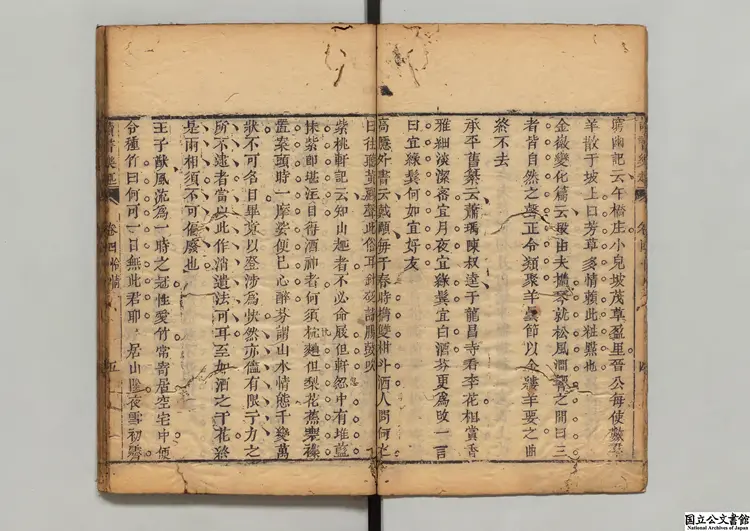 窮幽記云午橋庄小兒坡茂草盈里晉公每使數羣
羊散于坡上曰芳草多情賴此粧點也
變化篇云由夫撫琴就松風澗響之間曰三
者皆自然之聲正合類聚羊曇節以金縷羊要之曲
終不去
承平舊纂云蕭瑀陳叔達于龍昌寺看李花相賞香
雅細淡潔密宜月夜宜綠鬢宜白酒芬更爲改一言
曰宜綠鬢何如宜好友
高隱外書云戴顒每于春時攜雙柑斗酒人問何之
曰往聽黃鸝聲此俗耳針砭詩腸鼓吹
紫桃軒記云知山趣者不必命屐但軒窓中有堆藍
抹紫即堪注目得酒神者何須枕麯但梨花蕉葉
置案頭時一摩娑便已心醉芬謂山水情態千變萬
狀不可名目畢竟以登涉爲快然亦儘有限于力之
所不逮者當以此作消遣法可耳至如酒之于花終
是兩相須不可偏廢也
王子猷風流爲一時之冠性愛竹常寄居空宅中便
令種竹曰何可一日無此君耶 居山陰夜雪初霽
卷四 怡情 五
国立公文書館
National Archives of Japan